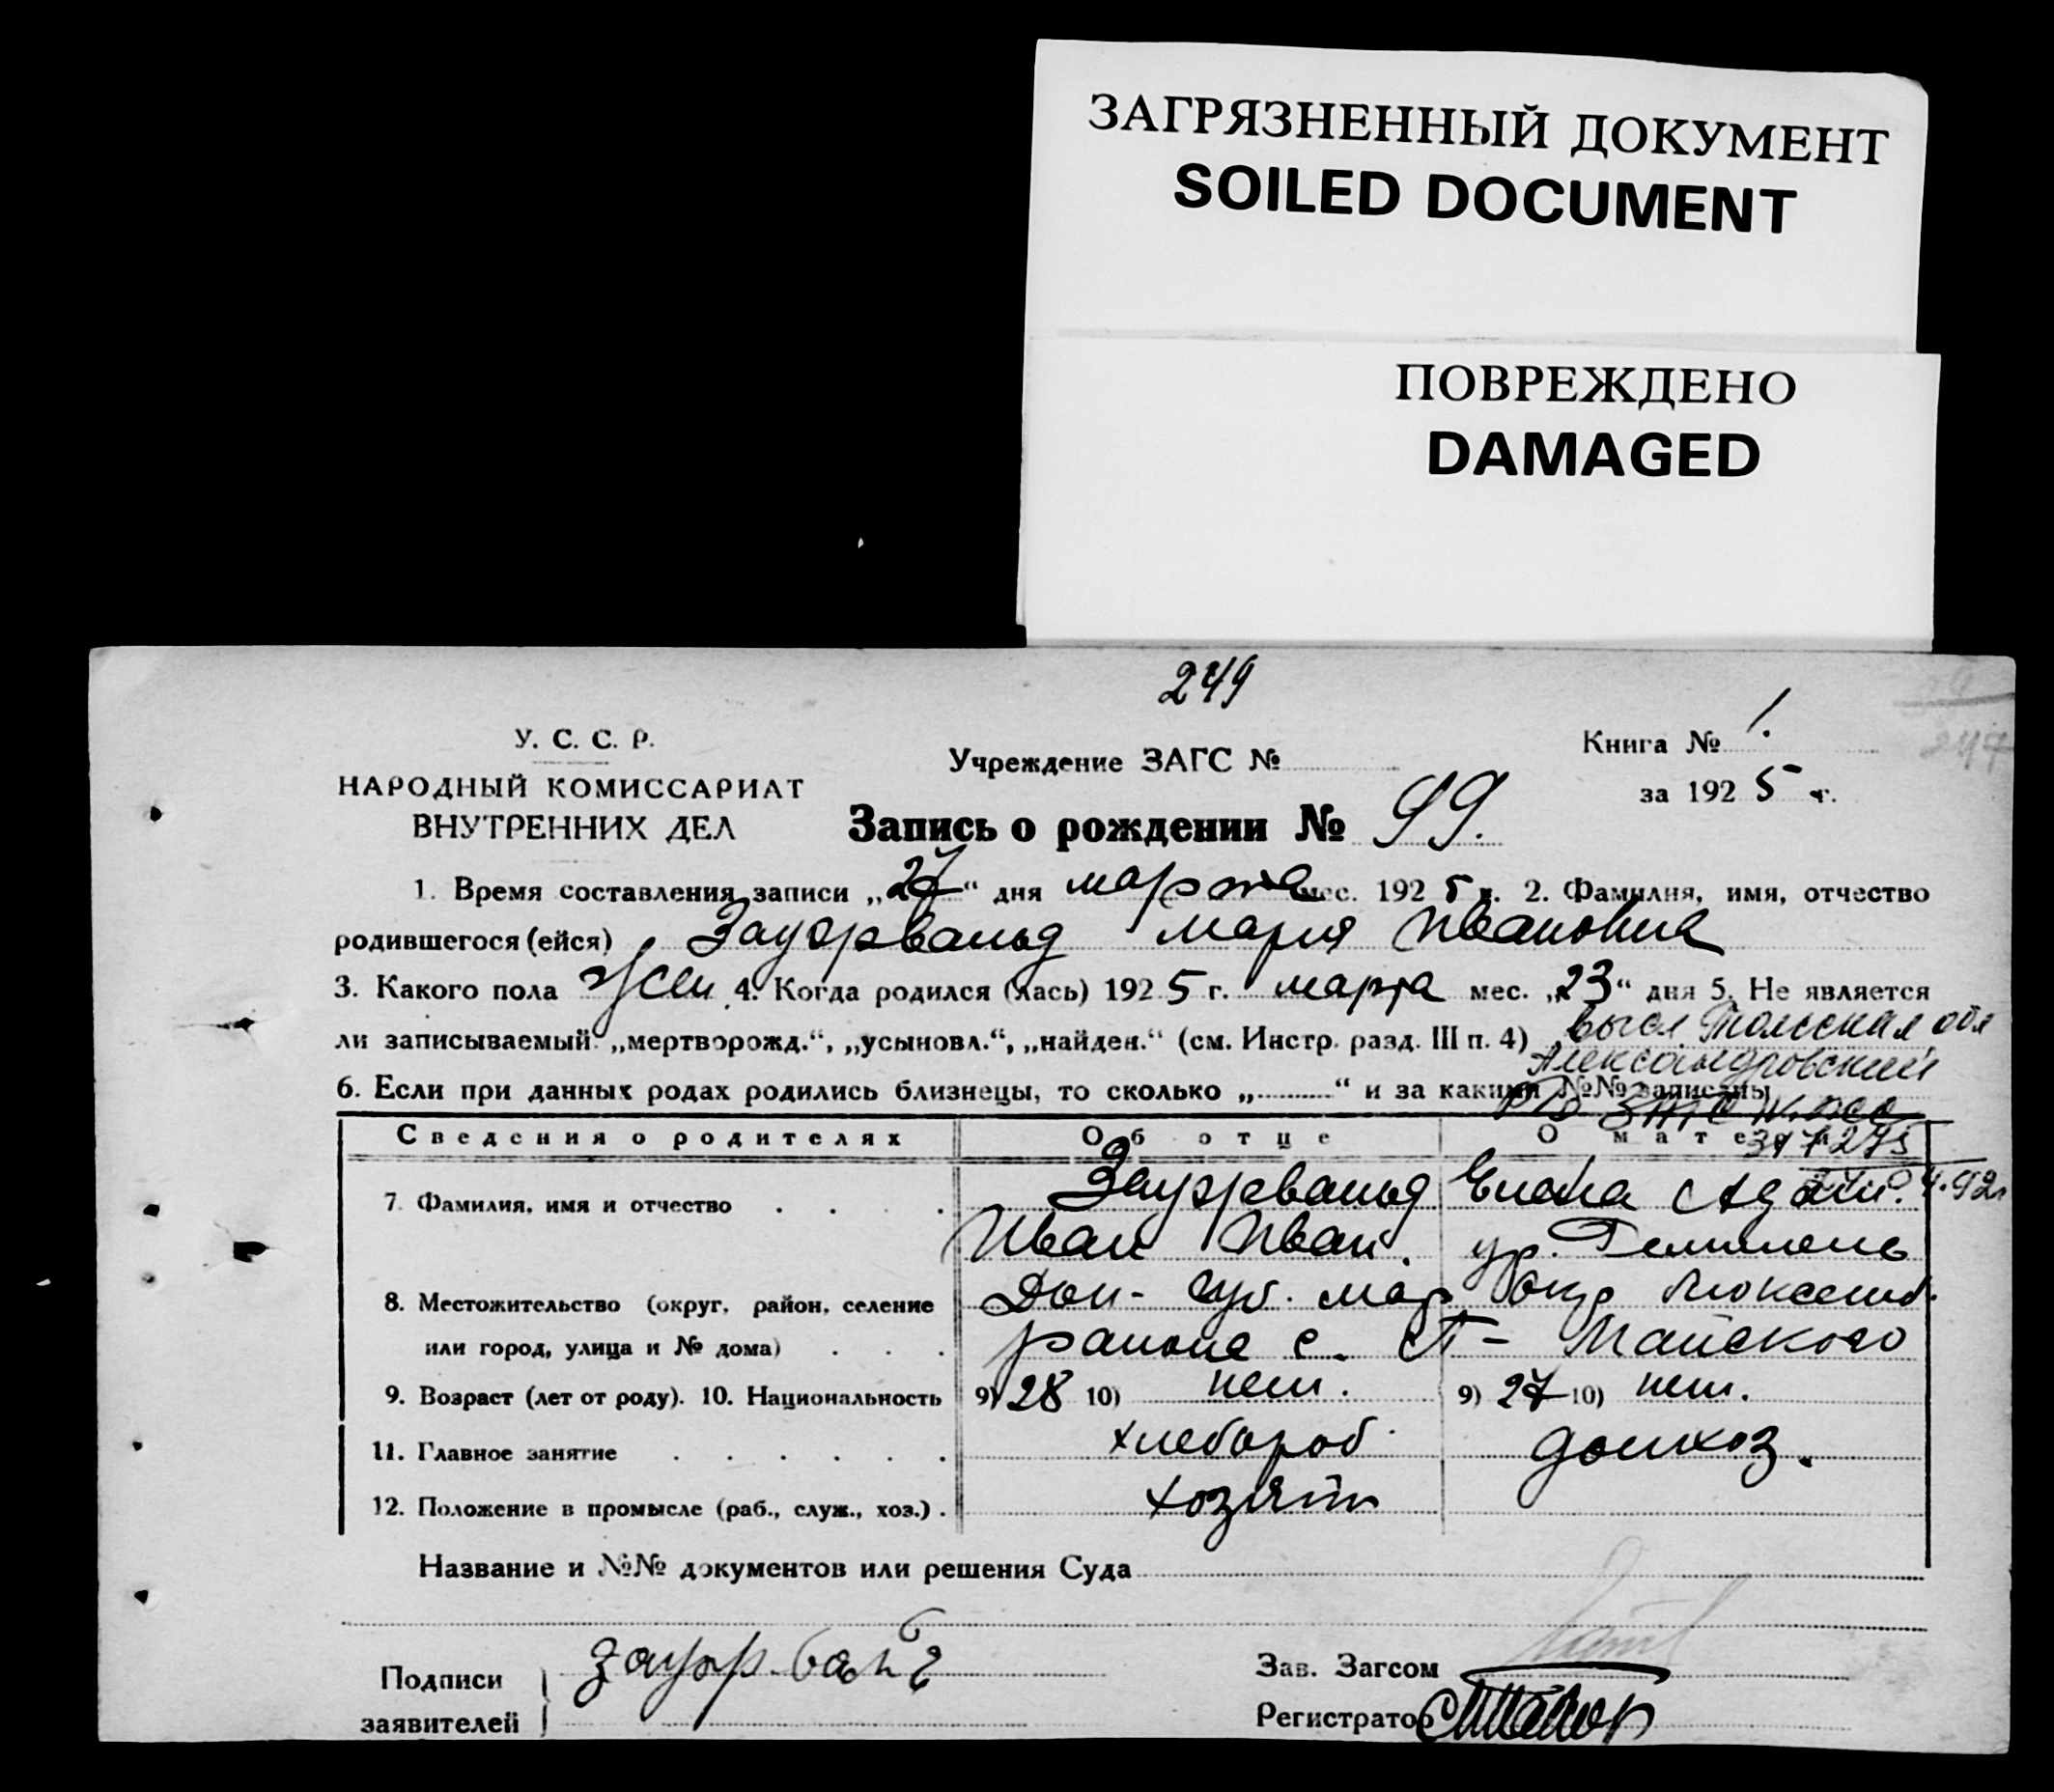 ЗАГРЯЗНЕННЫЙ ДОКУМЕНТ
SOILED DOCUMENT
ПОВРЕЖДЕНО
DAMAGED
249
У. С. С. Р.
НАРОДНЫЙ КОМИССАРИАТ
ВНУТРЕННИХ ДЕЛ
Учреждение ЗАГС №
Книга № 1.
за 1925 г.
Запись о рождении № 99.
1. Время составления записи „27“ дня марта мес. 1925 г. 2. Фамилия, имя, отчество
родившегося (ейся) Зауэрвальд Мария Ивановна
3. Какого пола жен 4. Когда родился (лась) 1925 г. марта мес. „23“ дня 5. Не является
ли записываемый „мертворожд.“, „усыновл.“, „найден.“ (см. Инстр. разд. III п. 4)
высл Томская обл
Александровский
6. Если при данных родах родились близнецы, то сколько „..........“ и за какими №№ записаны
Сведения о родителях Об отце О матери
7. Фамилия, имя и отчество Зауэрвальд Елена Адам.
Иван Иван. ур.
8. Местожительство (округ, район, селение Дон- губ. Мар окр Люксемб.
или город, улица и № дома) района с. Майского
9. Возраст (лет от роду). 10. Национальность 9) 28 10) нем. 9) 27 10) нем.
11. Главное занятие хлебороб. домхоз.
12. Положение в промысле (раб., служ., хоз.) хозяин
Название и №№ документов или решения Суда
Подписи
заявителей
Зауэрвальд
Зав. Загсом
Регистратор